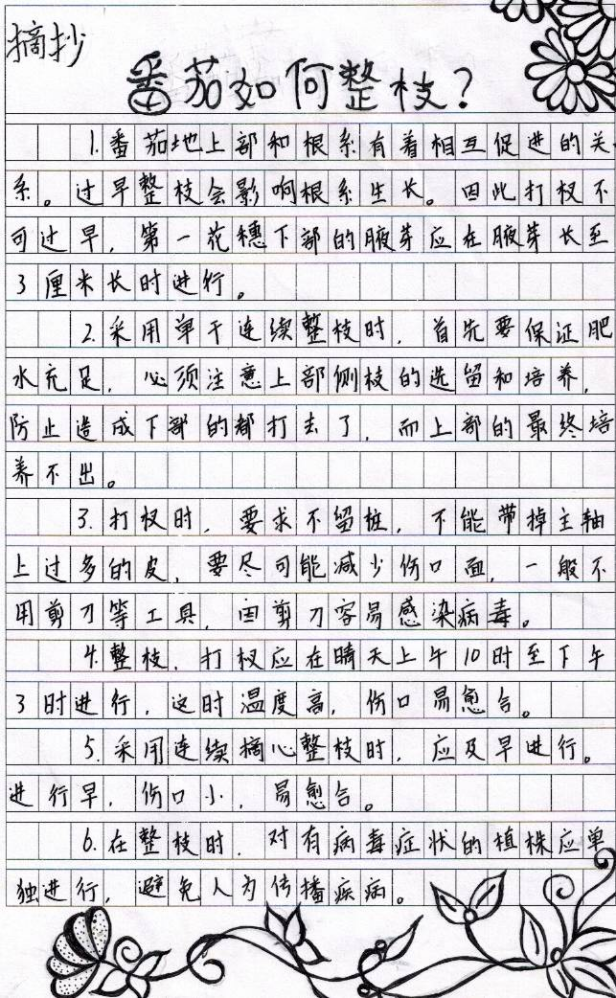 摘抄
番茄如何整枝?
1.番茄地上部和根系有着相互促进的关
系。过早整枝会影响根系生长。因此打杈不
可过早,第一花穗下部的腋芽应在腋芽长至
3厘米长时进行。
2.采用单干连续整枝时,首先要保证肥
水充足,必须注意上部侧枝的选留和培养,
防止造成下部的都打去了,而上部的最终培
养不出。
3.打杈时,要求不留桩,不能带掉主轴
上过多的皮,要尽可能减少伤口面,一般不
用剪刀等工具,因剪刀容易感染病毒。
4.整枝、打杈应在晴天上午10时至下午
3时进行,这时温度高,伤口易愈合。
5.采用连续摘心整枝时,应及早进行。
进行早,伤口小,易愈合。
6.在整枝时,对有病毒症状的植株应单
独进行,避免人为传播疾病。